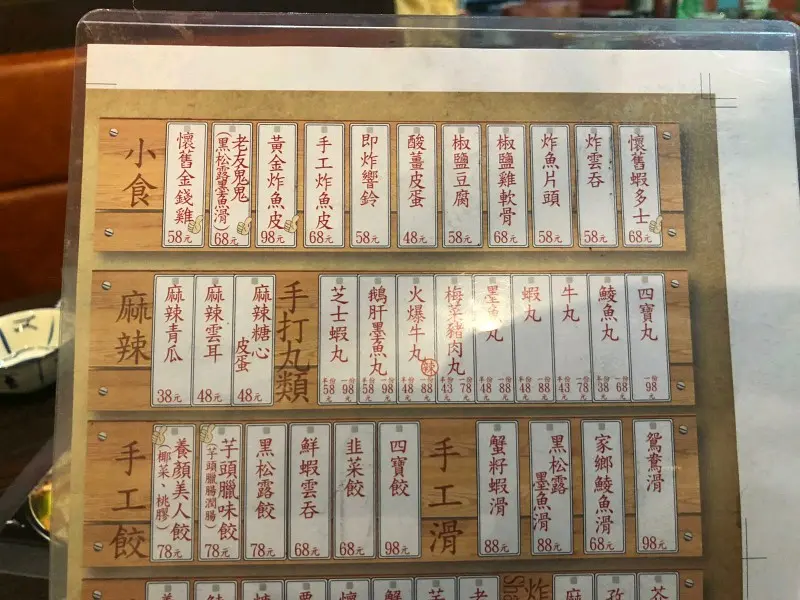 小食
懷舊金錢雞
58元
老友鬼鬼
(黑松露墨魚滑)
68元
黃金炸魚皮
98元
手工炸魚皮
68元
即炸響鈴
58元
酸薑皮蛋
48元
椒鹽豆腐
58元
椒鹽雞軟骨
68元
炸魚片頭
58元
炸雲吞
58元
懷舊蝦多士
68元
麻辣
麻辣青瓜
38元
麻辣雲耳
48元
麻辣糖心
皮蛋
48元
手打丸類
芝士蝦丸
半份58元 一份98元
鵝肝墨魚丸
半份58元 一份98元
火爆牛丸
辣
半份48元 一份88元
梅菜豬肉丸
半份43元 一份78元
墨魚丸
半份48元 一份88元
蝦丸
半份48元 一份88元
牛丸
半份43元 一份78元
鯪魚丸
半份38元 一份68元
四寶丸
一份98元
手工餃
養顏美人餃
(椰菜、桃膠)
78元
芋頭臘味餃
(芋頭臘腸潤腸)
78元
黑松露餃
78元
鮮蝦雲吞
68元
韭菜餃
68元
四寶餃
98元
手工滑
蟹籽蝦滑
88元
黑松露
墨魚滑
88元
家鄉鯪魚滑
68元
鴛鴦滑
98元
炸